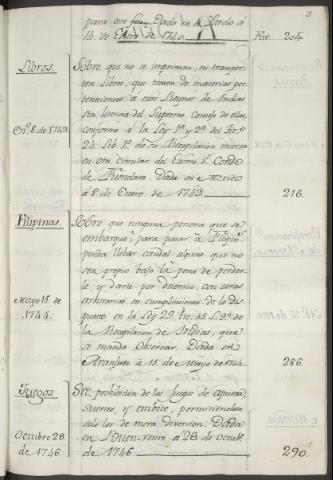 3
para ese fin Dada en el Pardo á
14. de Enero de 1740. Fox... 204.
Libros.
Sobre que no se impriman, ni transpor-
ten Libros, que traten de materias per-
tenecientes á estos Reynos de Indias
sin licencia del Supremo Consejo de ellas,
Enº 8 de 1743.
conforme á la Ley 1ª y 2ª del titº
24. Lib. 1º de su Recopilacion inserta
en otra circular del Exmo Sr Conde
de Fuenclara. Dada en Mexico
á 8 de Enero de 1743. 216.
Filipinas.
Sobre que ninguna persona que se
embarque, para pasar á Filipinˢ
pueda llebar caudal alguno que no
sea propio bajo la pena de perder-
le, y darle por decomiso, con otras
Mayo 15 de
1744.
arbitrarias en cumplimiento de lo dis-
puesto en la Ley 29. tit. 45 L. 9º de
la Recopilacion de Indias, que
se manda observar. Dada en
Aranjuez á 15 de Mayo de 1744. 286.
Juegos.
Sre prohibicion de los Juegos de apuesta
suertes, y embite, permitiendose
solo los de mera diversion. Dada
Octubre 28.
de 1746.
en Buen-retiro á 28 de octub.
de 1746. 290.